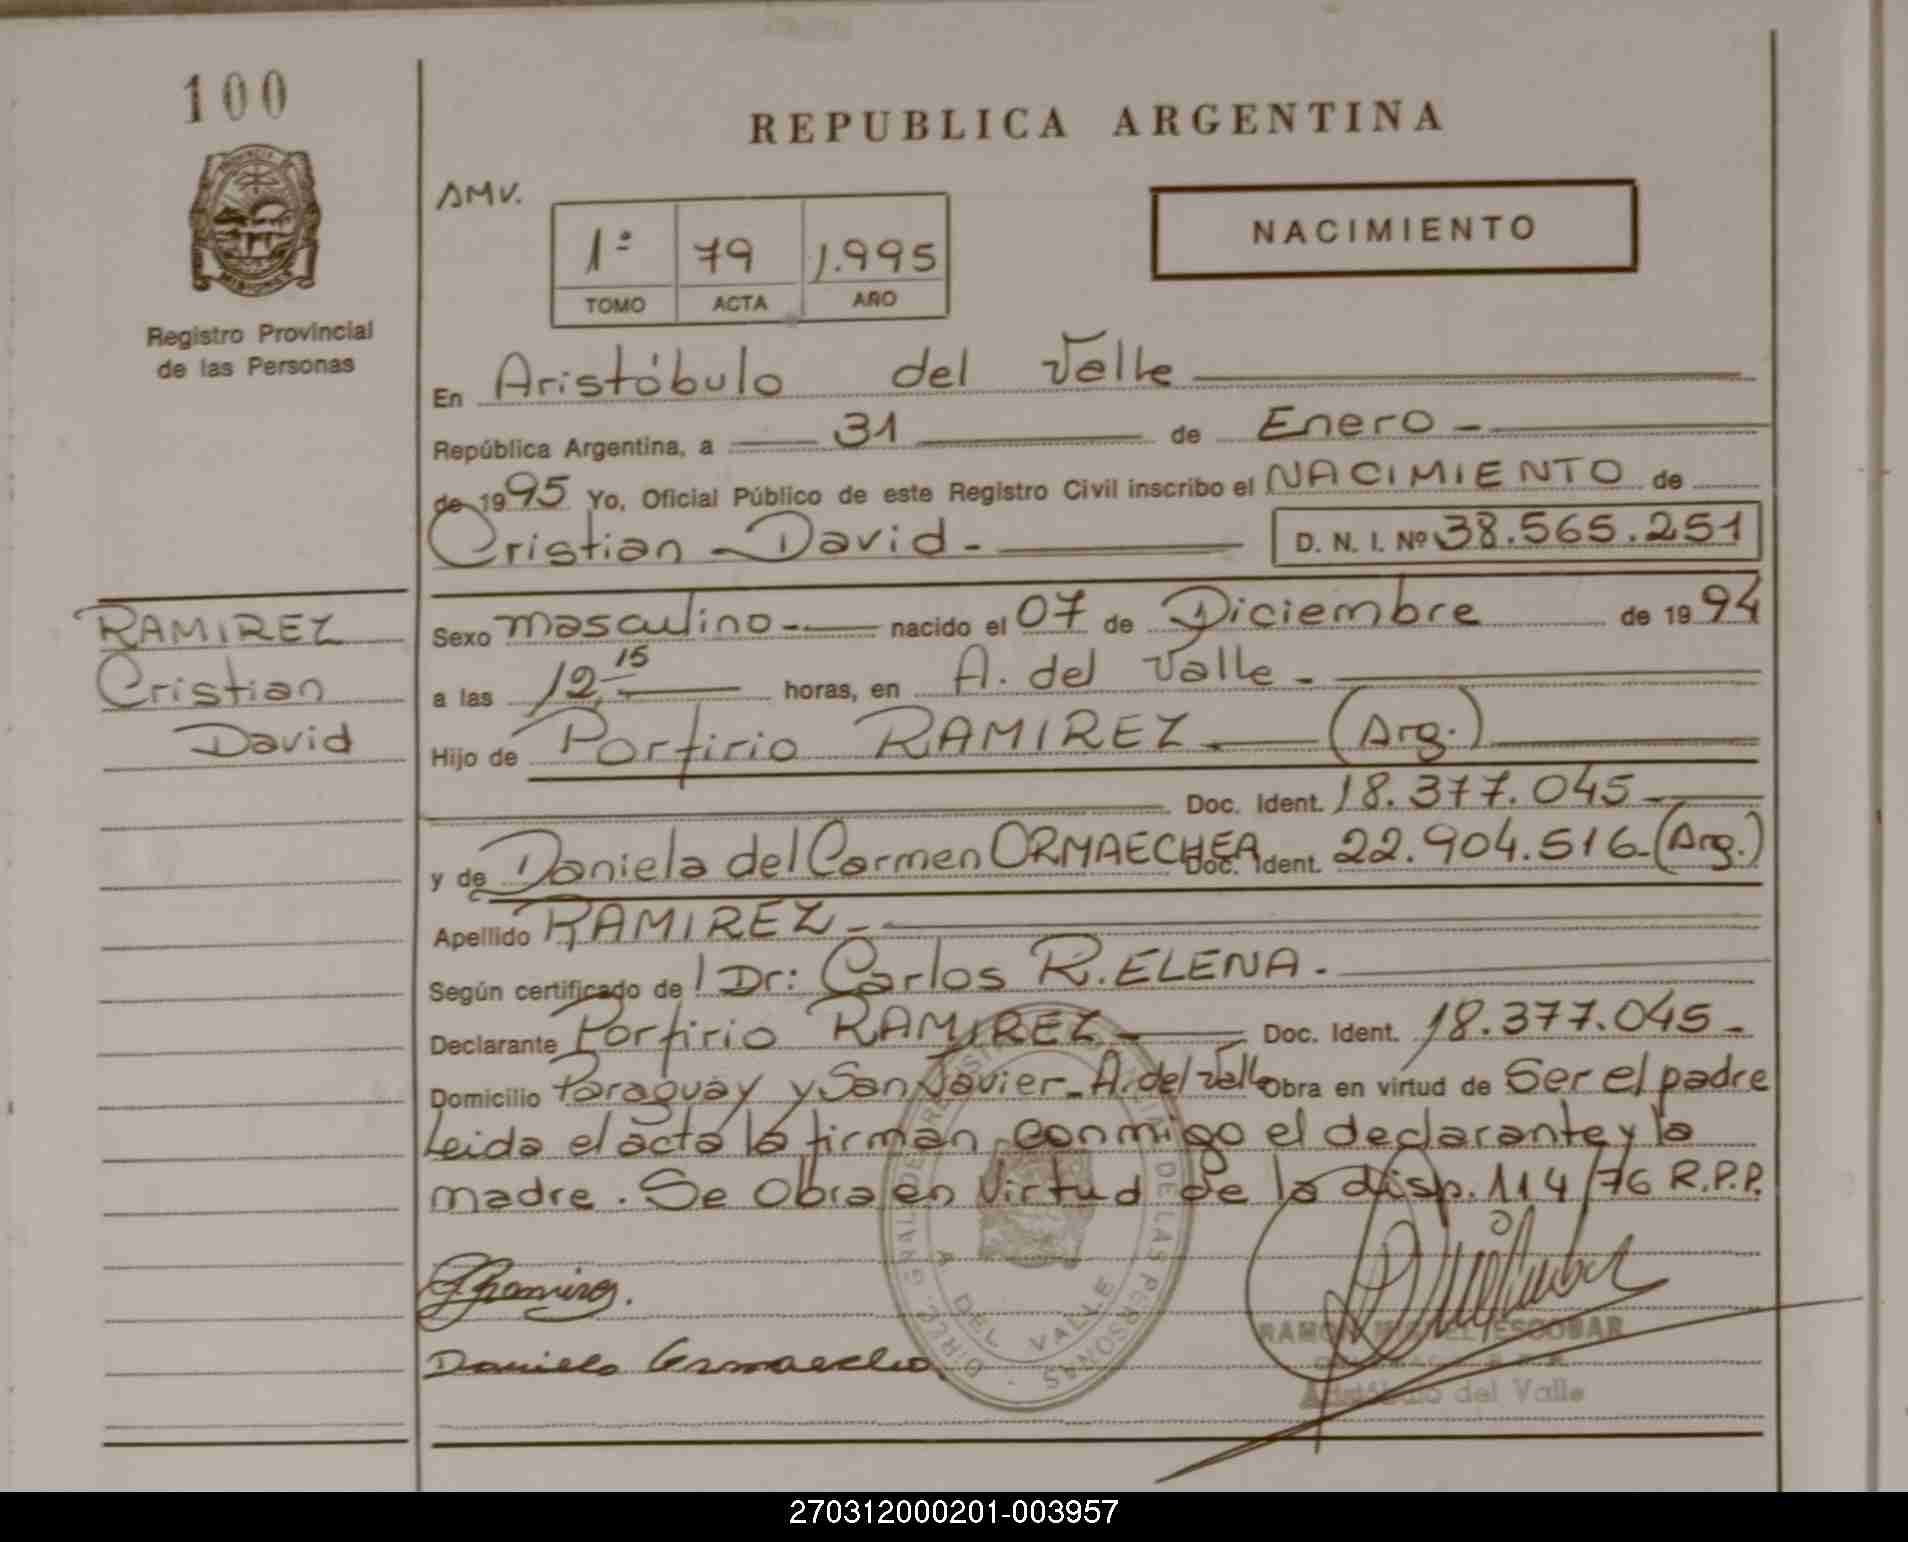 100
REPUBLICA ARGENTINA
PROVINCIA
MISIONES
Registro Provincial
de las Personas
AMV.
1ª 79 1.995
TOMO ACTA AÑO
NACIMIENTO
En Aristóbulo del Valle
República Argentina, a 31 de Enero -
de 1995 Yo, Oficial Público de este Registro Civil inscribo el NACIMIENTO de
Cristian - David - D. N. I. Nº 38.565.251
RAMIREZ
Cristian
David
Sexo masculino - nacido el 07 de Diciembre de 1994
a las 12,15 horas, en A. del Valle -
Hijo de Porfirio RAMIREZ - (Arg.)
Doc. Ident. 18.377.045 -
y de Daniela del Carmen ORMAECHEA Doc. Ident. 22.904.516 - (Arg.)
Apellido RAMIREZ -
Según certificado de l Dr: Carlos R. ELENA.
Declarante Porfirio RAMIREZ - Doc. Ident. 18.377.045 -
Domicilio Paraguay y San Javier - A. del Valle Obra en virtud de Ser el padre
Leida el acta la firman conmigo el declarante y la
madre. Se Obra en Virtud de la disp. 114/76 R.P.P.
Daniela Ormaechea
DE LAS PERSONAS
A. DEL VALLE
RAMON MIGUEL ESCOBAR
Aristóbulo del Valle
270312000201-003957